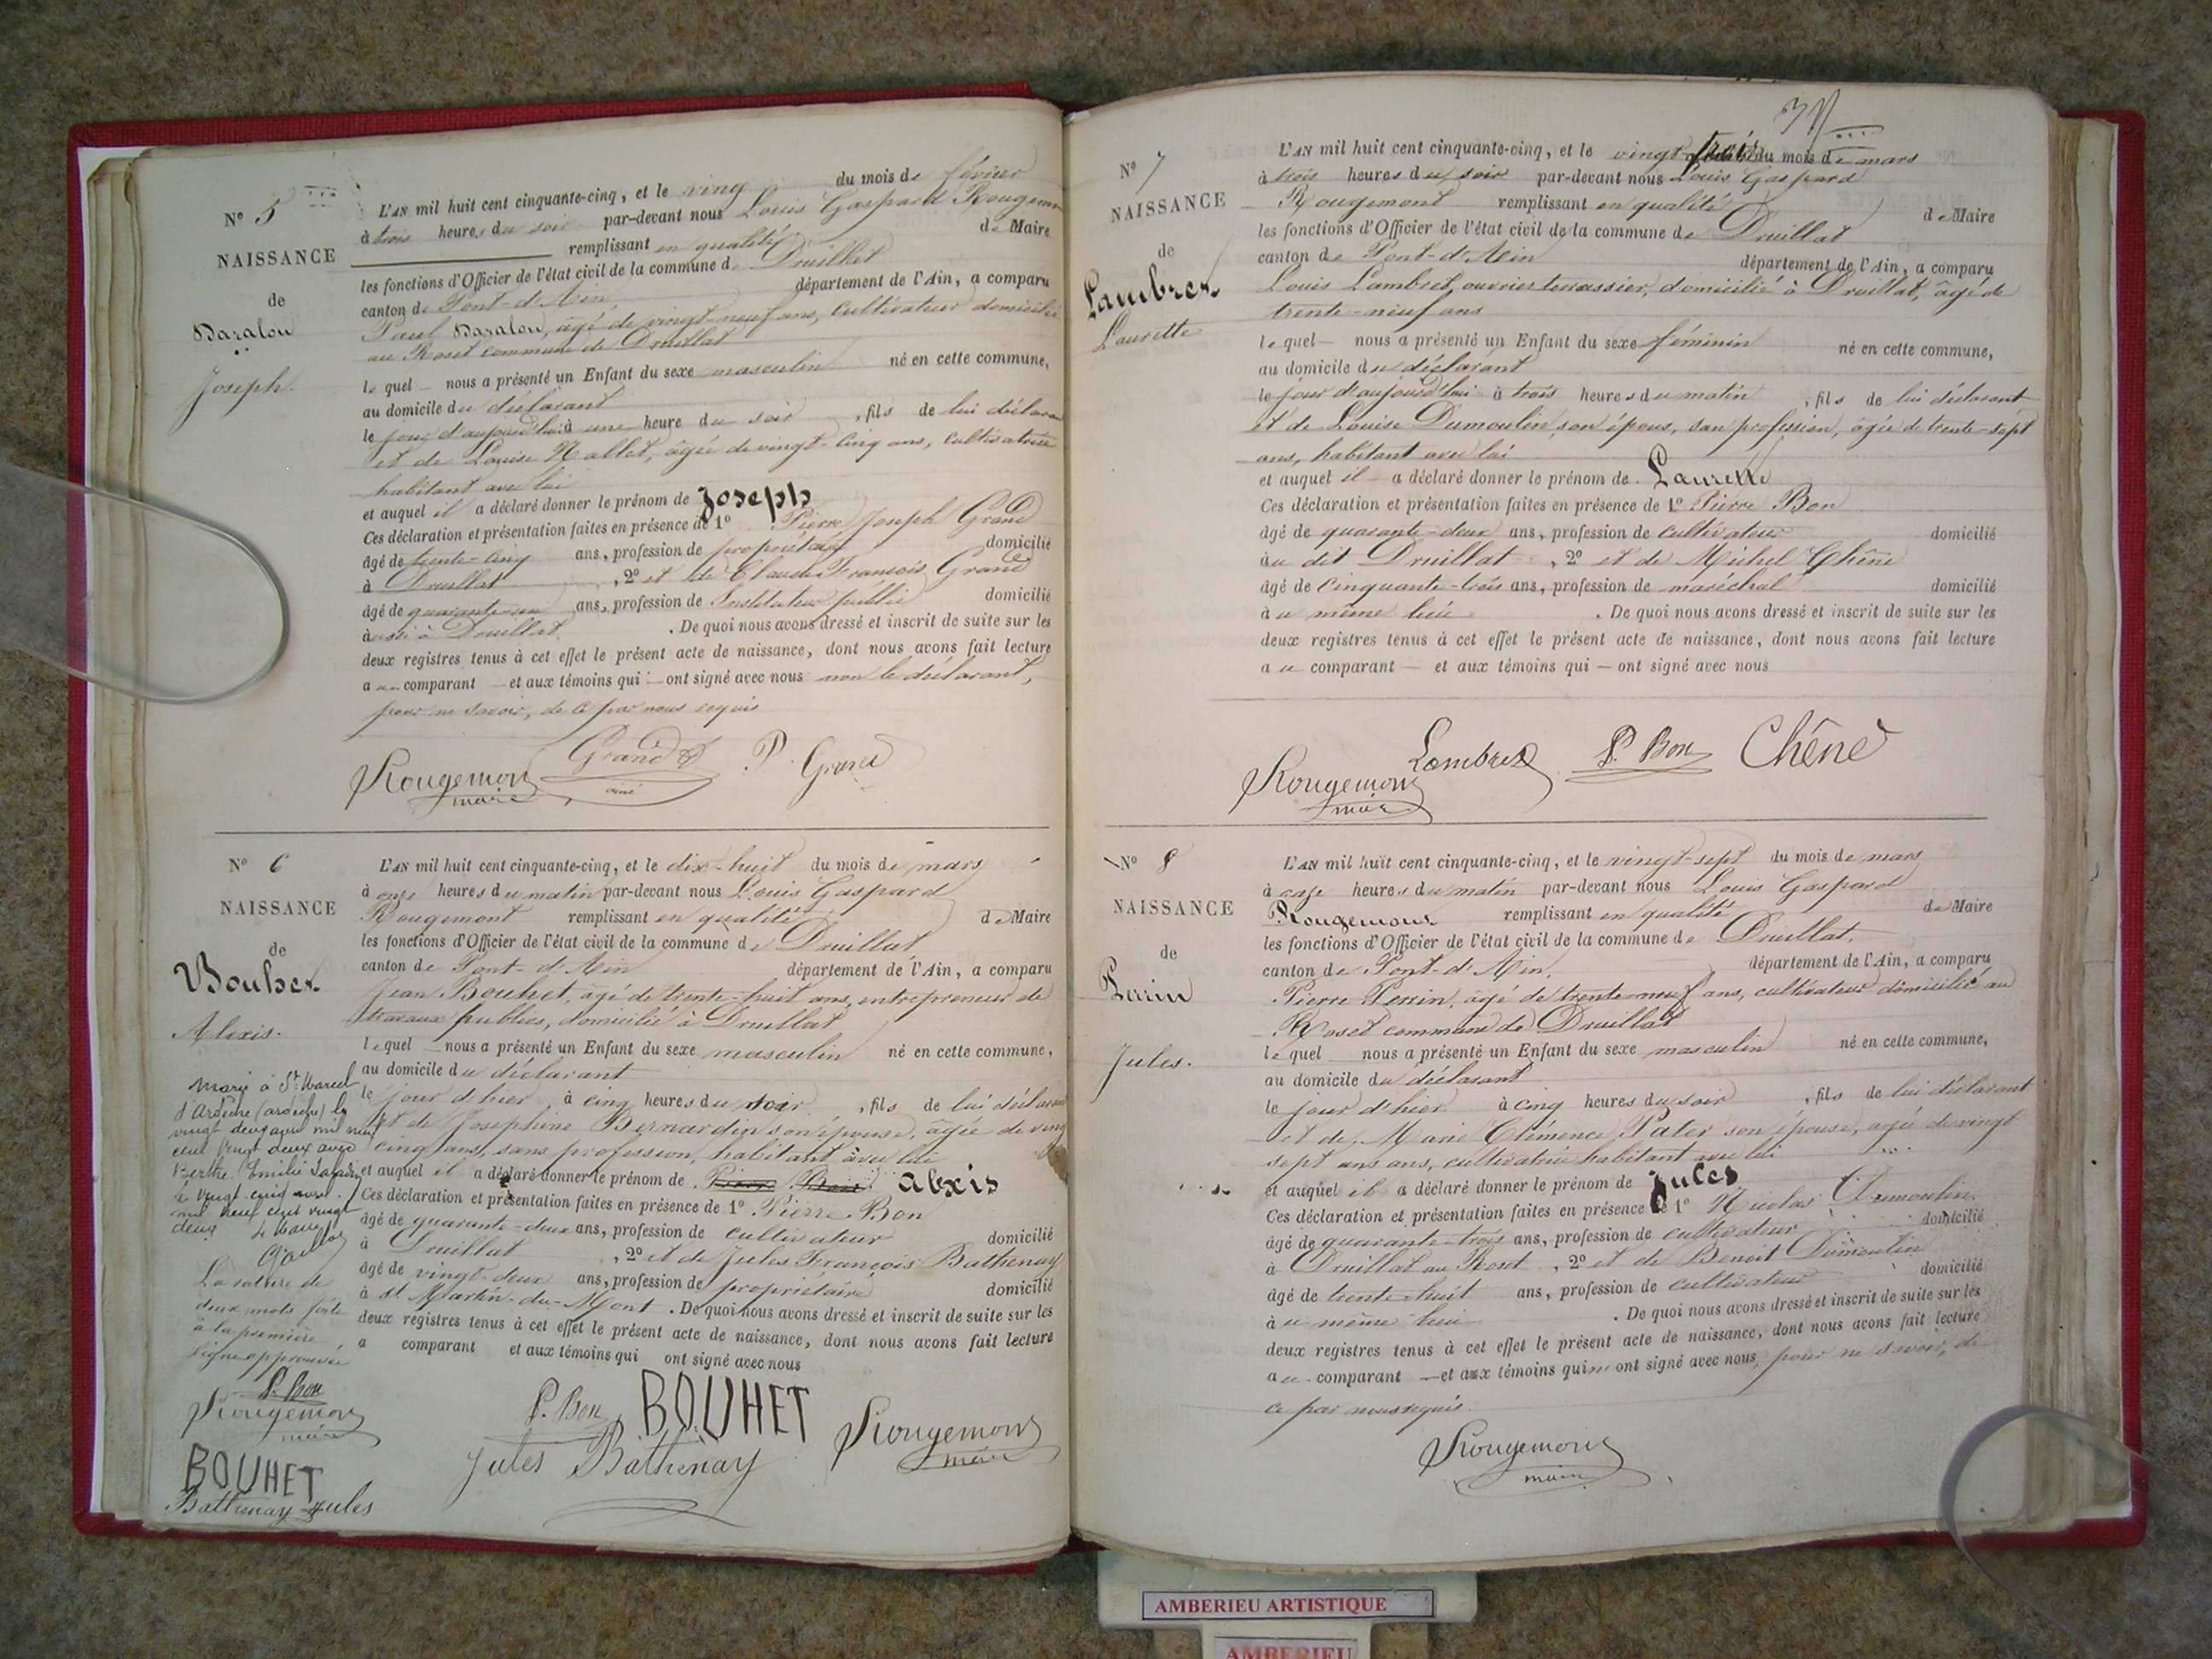 N° 5
NAISSANCE
de
Baralon
Joseph.
L'AN mil huit cent cinquante-cinq, et le ving du mois de février
à trois heures du soir par-devant nous Louis Gaspard Rougemon
remplissant en qualité de Maire
les fonctions d'Officier de l'état civil de la commune de Druillat
canton de Pont-d'Ain, département de l'Ain, a comparu
Paul Baralon, âgé de vingt-neuf ans, cultivateur domicilié
au Roset commune de Druillat
le quel nous a présenté un Enfant du sexe masculin né en cette commune,
au domicile du déclarant
le jour d'aujourd'hui à une heure du soir, fils de lui déclarant
et de Louise Nallet, âgée de vingt-cinq ans, cultivatrice
habitant avec lui
et auquel il a déclaré donner le prénom de Joseph
Ces déclaration et présentation faites en présence de 1° Pierre Joseph Grand
âgé de trente-cinq ans, profession de propriétaire domicilié
à Druillat, 2° et de Claude François Grand
âgé de quarante-un ans, profession de Instituteur public domicilié
aussi à Druillat. De quoi nous avons dressé et inscrit de suite sur les
deux registres tenus à cet effet le présent acte de naissance, dont nous avons fait lecture
au comparant et aux témoins qui ont signé avec nous non le déclarant,
pour ne savoir, de ce par nous requis
Rougemont maire Grand aîné P. Grand
N° 6
NAISSANCE
de
Bouhet
Alexis.
L'AN mil huit cent cinquante-cinq, et le dix-huit du mois de mars
à onze heures du matin par-devant nous Louis Gaspard
Rougemont remplissant en qualité de Maire
les fonctions d'Officier de l'état civil de la commune de Druillat
canton de Pont-d'Ain département de l'Ain, a comparu
Jean Bouhet, âgé de trente-huit ans, entrepreneur de
travaux publics, domicilié à Druillat
le quel nous a présenté un Enfant du sexe masculin né en cette commune,
au domicile du déclarant
le jour d'hier, à cinq heures du soir, fils de lui déclarant
et de Josephine Bernardin son épouse, âgée de ving
cinq ans, sans profession, habitant avec lui
et auquel il a déclaré donner le prénom de Alexis
Ces déclaration et présentation faites en présence de 1° Pierre Bon
âgé de quarante-deux ans, profession de cultivateur domicilié
à Druillat, 2° et de Jules François Bathenay
âgé de vingt-deux ans, profession de propriétaire domicilié
à St Martin-du-Mont. De quoi nous avons dressé et inscrit de suite sur les
deux registres tenus à cet effet le présent acte de naissance, dont nous avons fait lecture
a comparant et aux témoins qui ont signé avec nous
P. Bon BOUHET Rougemont maire
Jules Bathenay
Marié à St Marcel
d'Ardèche (ardèche) le
vingt deux mil neuf
cent vingt deux avec
Berthe Emilie
le vingt cinq
mil neuf cent vingt
deux
La rature de
deux mots faite
à la première
ligne approuvée
P. Bon
Rougemont
maire
BOUHET
Bathenay Jules
N° 7
NAISSANCE
de
Lambret
Laurette
L'AN mil huit cent cinquante-cinq, et le vingt trois du mois de mars
à trois heures du soir par-devant nous Louis Gaspard
Rougemont remplissant en qualité de Maire
les fonctions d'Officier de l'état civil de la commune de Druillat
canton de Pont-d'Ain département de l'Ain, a comparu
Louis Lambret, ouvrier terrassier, domicilié à Druillat, âgé de
trente-neuf ans
le quel nous a présenté un Enfant du sexe féminin né en cette commune,
au domicile du déclarant
le jour d'aujourd'hui à trois heures du matin, fils de lui déclarant
et de Louise Dumoulin, son épous, san profession, âgée de trente-sept
ans, habitant avec lui
et auquel il a déclaré donner le prénom de Laurette
Ces déclaration et présentation faites en présence de 1° Pierre Bon
âgé de quarante-deux ans, profession de cultivateur domicilié
au dit Druillat, 2° et de Michel Chêne
âgé de cinquante-trois ans, profession de maréchal domicilié
au même lieu. De quoi nous avons dressé et inscrit de suite sur les
deux registres tenus à cet effet le présent acte de naissance, dont nous avons fait lecture
au comparant et aux témoins qui ont signé avec nous
Rougemont maire Lambret P. Bon Chêne
N° 8
NAISSANCE
de
Perrin
Jules.
L'AN mil huit cent cinquante-cinq, et le vingt-sept du mois de mars
à onze heures du matin par-devant nous Louis Gaspard
Rougemont remplissant en qualité de Maire
les fonctions d'Officier de l'état civil de la commune de Druillat.
canton de Pont-d'Ain, département de l'Ain, a comparu
Pierre Perrin, âgé de trente-neuf ans, cultivateur domicilié au
Roset commune de Druillat
le quel nous a présenté un Enfant du sexe masculin né en cette commune,
au domicile du déclarant
le jour d'hier à cinq heures du soir, fils de lui déclarant
et de Marie Clémence Pater son épouse, âgée de vingt
sept ans ans, cultivatrice habitant avec lui
et auquel il a déclaré donner le prénom de Jules
Ces déclaration et présentation faites en présence de 1° Nicolas Dumoulin
âgé de quarante-trois ans, profession de cultivateur domicilié
à Druillat au Roset, 2° et de Benoit Dumoulin
âgé de trente-huit ans, profession de cultivateur domicilié
au même lieu. De quoi nous avons dressé et inscrit de suite sur les
deux registres tenus à cet effet le présent acte de naissance, dont nous avons fait lecture
au comparant et aux témoins qui n'ont signé avec nous, pour ne savoir, de
ce par nous requis.
Rougemont
maire
AMBERIEU ARTISTIQUE
AMBERIEU